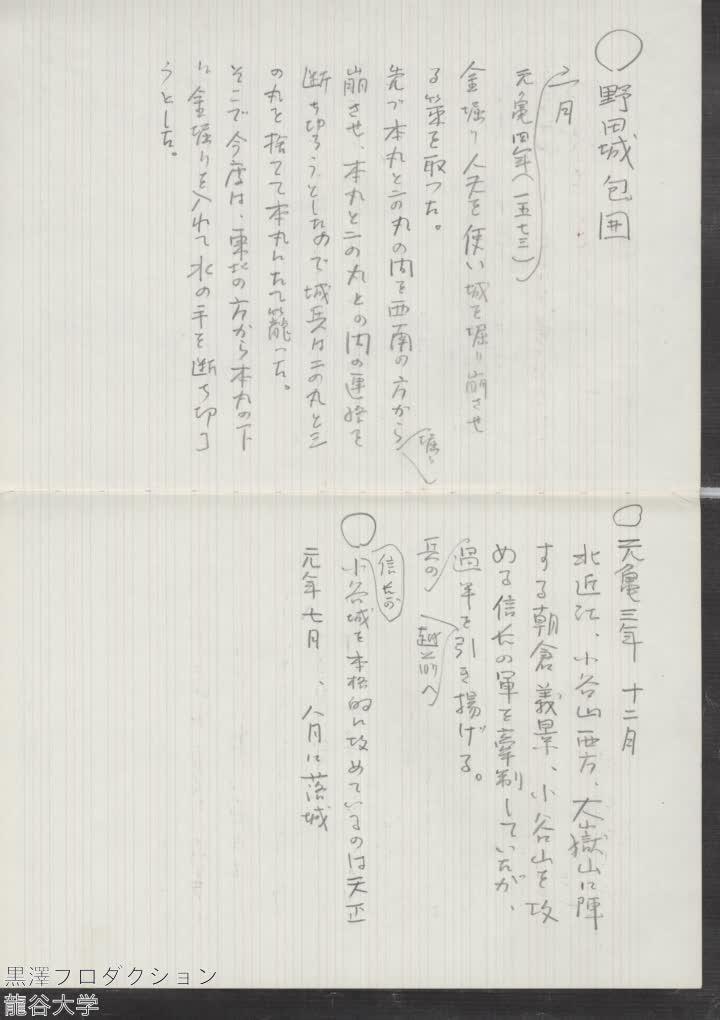 ○野田城包囲
二月
元亀四年(一五七三)
金堀り人夫を使い城を堀り崩させ
る策を取った。
先づ本丸と二の丸の間を西南の方から堀り
崩させ、本丸と二の丸との間の連絡を
断ち切ろうとしたので城兵は二の丸と三
の丸を捨てて本丸にたて籠った。
そこで今度は、東北の方から本丸の下
に金堀りを入れて水の手を断ち切ろ
うとした。
○元亀三年 十二月
北近江、小谷山西方、大嶽山に陣
する朝倉義景、小谷山を攻
める信長の軍を牽制していたが、
兵の過半を越前へ引き揚げる。
○信長が小谷城を本格的に攻めているのは天正
元年七月、八月に落城
黒澤プロダクション
龍谷大学